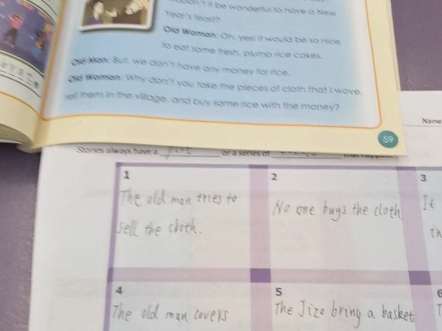 it be wonderful to have a New
Year's feast?
Old Woman: Oh, yes! It would be so nice
to eat some fresh, plump rice cakes.
Old Man: But, we don't have any money for rice.
Old Woman: Why don't you take the pieces of cloth that I wove,
sell them in the village, and buy some rice with the money?
59
Name
Stories always have a or a series of
1
The old man tries to
sell the cloth.
2
No one buys the cloth
3
It
4
The old man covers
5
The Jizo bring a basket
6